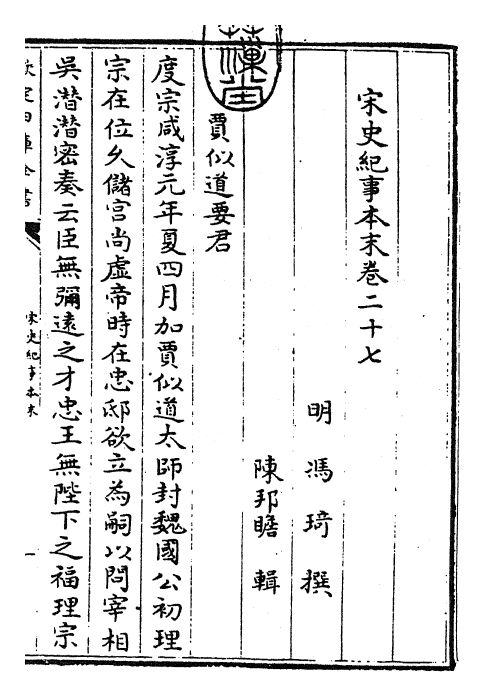 宋史紀事本末卷二十七
明 馮琦 撰
陳邦瞻 輯
賈似道要君
度宗咸淳元年夏四月加賈似道太師封魏國公初理
宗在位久儲宮尚虛帝時在忠邸欲立為嗣以問宰相
吳潛潛密奏云臣無彌遠之才忠王無陛下之福理宗
欽定四庫全書
宋史紀事本末
一